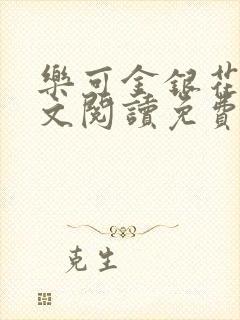 樂可金銀花
文閱讀免費
克生